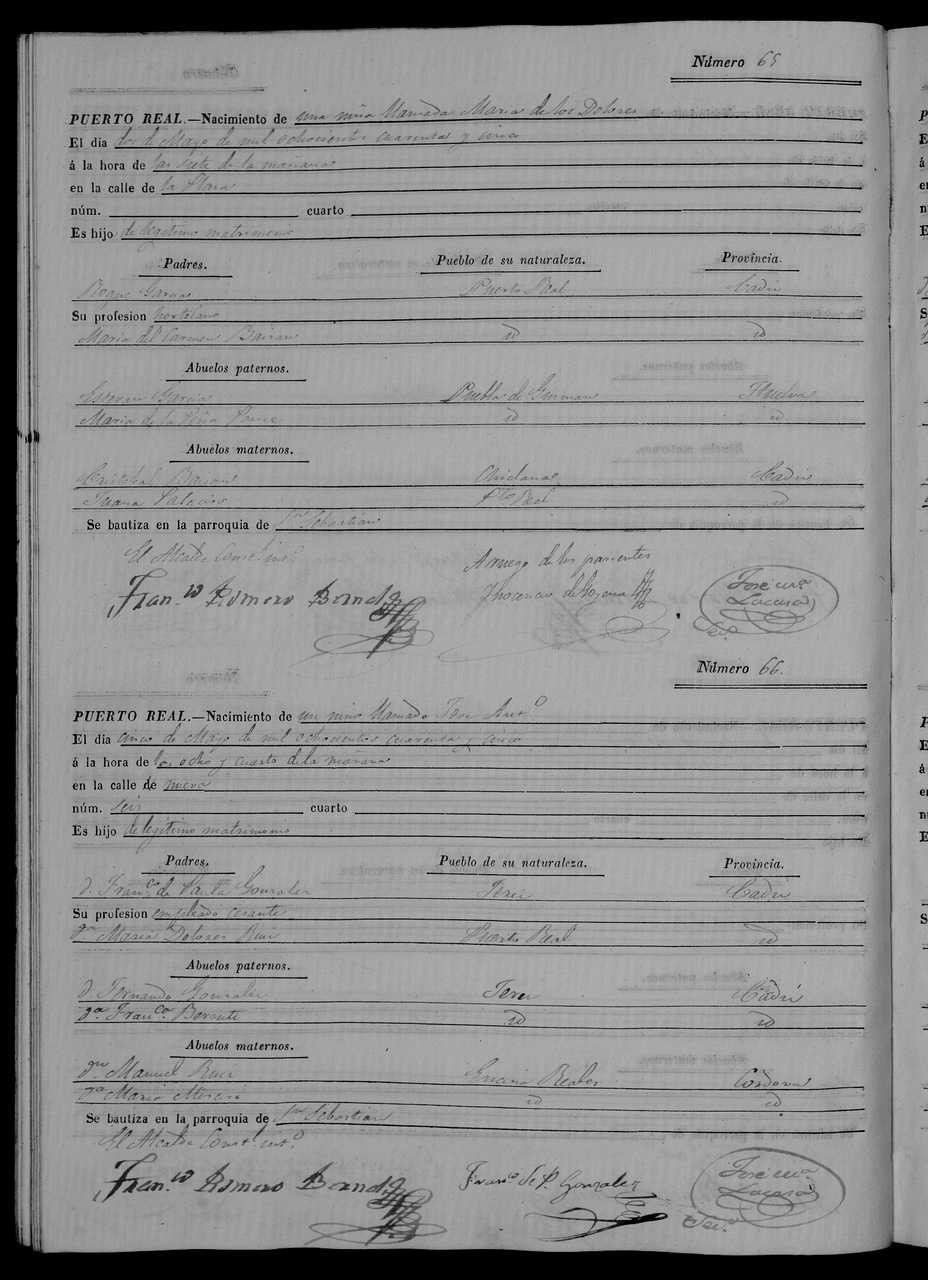 Número 65
PUERTO REAL.—Nacimiento de una niña llamada Maria de los Dolores
El dia dos de Mayo de mil ochocientos cuarenta y cinco
á la hora de las siete de la mañana
en la calle de la Plaza
núm. cuarto
Es hijo de legitimo matrimonio
Padres. Pueblo de su naturaleza. Provincia.
Roque Garcia Puerto Real Cadiz
Su profesion hortelano
Maria del Carmen id id
Abuelos paternos.
Estevan Garcia Puebla de Guzman Huelva
Maria de la Peña Ponce id id
Abuelos maternos.
Cristobal Chiclana Cadiz
Juana Palacios Pto Real id
Se bautiza en la parroquia de Sn Sebastian
El Alcalde Const.
A ruego de los parientes
Fran.co Romero
José ma
Lacasa
Sec.o
Número 66.
PUERTO REAL.—Nacimiento de un niño llamado Jose Anto
El dia cinco de Mayo de mil ochocientos cuarenta y cinco
á la hora de las ocho y cuarto de la mañana
en la calle de nueva
núm. seis cuarto
Es hijo de legitimo matrimonio
Padres. Pueblo de su naturaleza. Provincia.
d. Fran.co de Paula Gonzalez Jerez Cadiz
Su profesion empleado cesante
da Maria Dolores Ruiz Puerto Real id
Abuelos paternos.
d Fernando Gonzalez Jerez Cadiz
da Fran.ca id id
Abuelos maternos.
dn Manuel Ruiz Cordova
da Maria id id
Se bautiza en la parroquia de Sn Sebastian
El Alcalde Const.
Fran.co Romero
Fran.o de P. Gonzalez
José ma
Lacasa
Sec.o